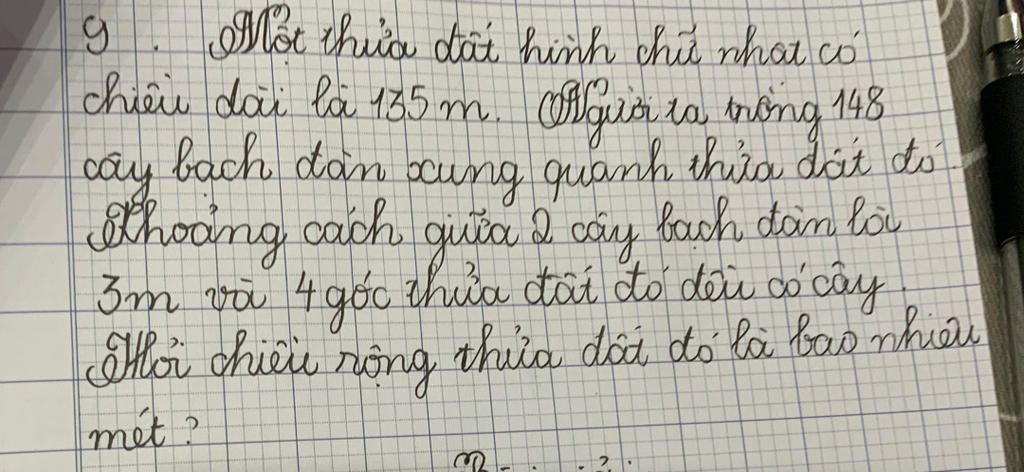 9. Một thửa đất hình chữ nhật có
chiều dài là 135 m. Người ta trồng 148
cây bạch đàn xung quanh thửa đất đó.
Khoảng cách giữa 2 cây bạch đàn là
3m và 4 góc thửa đất đó đều có cây.
Hỏi chiều rộng thửa đất đó là bao nhiêu
mét?